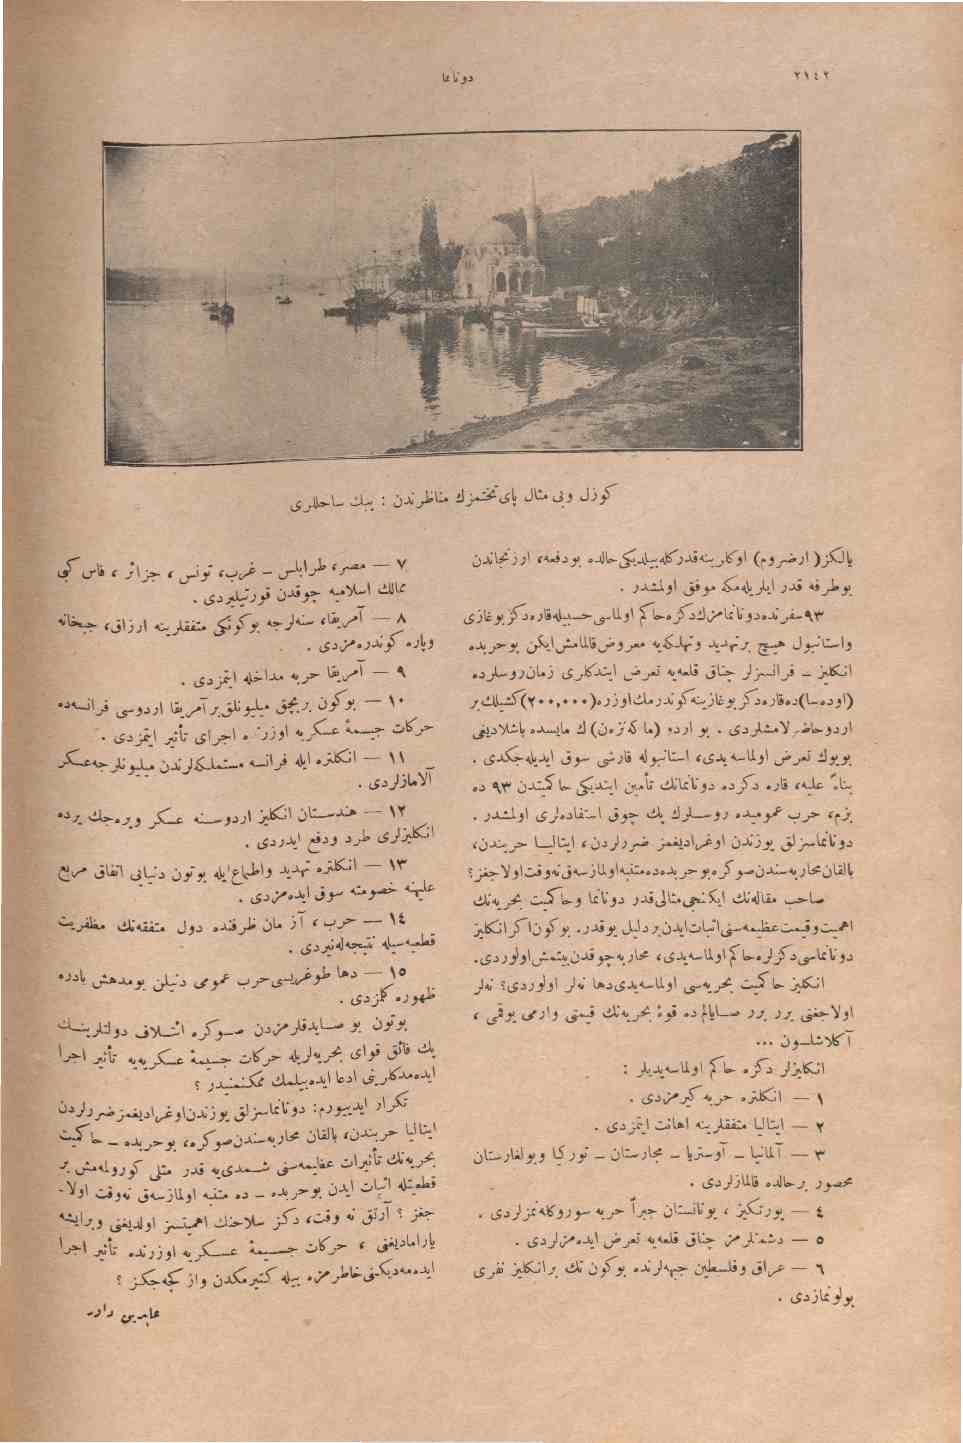 ٢١٤٢
دونانما
كوزل وبى مثال پاى‌تختمزك مناظرندن : ببك ساحللرى
يالكز ( ارضروم ) اوكلرينه‌قدركله‌بيلديكى‌حالده بودفعه، ارزنجاندن
بوطرفه قدر ايلريله‌مكه موفق اولمشدر .
٩٣سفرنده‌دونانمامزك‌دكزه‌حاكم اولماسى‌حسبيله‌قاره‌دكزبوغازى
واستانبول هيچ برتهديد وتهلكه‌يه معروض‌قالمامش‌ايكن بوحربده
انكليز ــ فرانسزلر چناق قلعه‌يه تعرض ايتدكلرى زمان‌روسلرده
(اوده‌سا)ده‌قاره‌دكز بوغازينه‌كوندرمك‌اوزره(٢٠٠,٠٠٠)كشيلك‌بر
اردوحاضرلامشلردى . بو اردو (ماكه‌نزه‌ن) ك مايسده باشلاديغى
بويوك تعرض اولماسه‌يدى، استانبوله قارشى سوق ايديله‌جكدى .
بناءً عليه، قاره دكزده دونانمانك تأمين ايتديكى حاكميتدن ٩٣ ده
بزم، حرب عموميده روسلرك پك چوق استفاده‌لرى اولمشدر .
دونانماسزلق يوزندن اوغراديغمز ضررلردن، ايتاليا حربندن،
بالقان‌محاربه‌سندن‌صوكره‌بوحربده‌ده‌متنبه‌اولمازسه‌ق‌نه‌وقت‌اولاجغز؟
صاحب مقاله‌نك ايكنجى‌مثالى‌قدر دونانما وحاكميت بحريه‌نك
اهميت‌وقيمت‌عظيمه‌سنى‌اثبات‌ايدن‌بردليل يوقدر. بوكون‌اكرانكليز
دونانماسى‌دكزلره‌حاكم اولماسه‌يدى، محاربه‌چوقدن‌بيتمش‌اولوردى.
انكليز حاكميت بحريه‌سى اولماسه‌يدى‌دها نه‌لر اولوردى؟ نه‌لر
اولاجغنى برر برر صايالم‌ده قوهٔ بحريه‌نك قيمتى وارمى يوقمى ،
آكلاشلسون ...
انكليزلر دكزه حاكم اولماسه‌يديلر :
١ — انكلتره حربه كيرمزدى .
٢ — ايتاليا متفقلرينه اهانت ايتمزدى .
٣ — آلمانيا ــ آوستريا ــ مجارستان ــ توركيا وبولغارستان
محصور برحالده قالمازلردى .
٤ — پورتكيز ، يونانستان جبراً حربه سوروكله‌نمزلردى .
٥ — دشمنلرمز چناق قلعه‌يه تعرض ايده‌مزلردى .
٦ — عراق وفلسطين جبهه‌لرنده بوكون تك برانكليز نفرى
بولونمازدى .
٧ — مصر، طرابلس ــ غرب، تونس ، جزائر ، فاس كبى
ممالك اسلاميه چوقدن قورتيليردى .
٨ — آمريقا، سنه‌لرجه بوكونكى متفقلرينه ارزاق، جبخانه
وپاره كوندره‌مزدى .
٩ — آمريقا حربه مداخله ايتمزدى .
١٠ — بوكون بربچق ميليونلق‌برآمريقا اردوسى فرانسه‌ده
حركات جسيمهٔ عسكريه اوزرنده اجراى تأثير ايتمزدى .
١١ — انكلتره ايله فرانسه مستملكه‌لرندن ميليونلرجه‌عسكر
آلامازلردى .
١٢ — هندستان انكليز اردوسنه عسكر ويره‌جك يرده
انكليزلرى طرد ودفع ايدردى .
١٣ — انكلتره تهديد واطماع‌ايله بوتون دنيايى اتفاق مربع
عليهنه خصومته سوق ايده‌مزدى .
١٤ — حرب، آز مان ظرفنده دول متفقه‌نك مظفريت
قطعيه‌سيله نتيجه‌له‌نيردى .
١٥ — دها طوغريسى‌حرب عمومى دنيلن بومدهش بادره
ظهوره كلمزدى .
بوتون بو صايدقلرمزدن صوكره ائتلاف دولتلرينك
پك فائق قواى بحريه‌لريله حركات جسيمهٔ عسكريه‌يه تأثير اجرا
ايده‌مدكلرينى ادعا ايده‌بيلمك ممكنميدر ؟
تكرار ايدييورم: دونانماسزلق يوزندن‌اوغراديغمزضررلردن
ايتاليا حربندن، بالقان محاربه‌سندن‌صوكره، بوحربده ــ حاكميت
بحريه‌نك تأثيرات عظيمه‌سنى شمدى‌يه قدر مثلى كورولمه‌مش بر
قطعيتله اثبات ايدن بوحربده ــ ده متنبه اولمازسه‌ق نه‌وقت اولا-
جغز ؟ آرتق نه وقت، دكز سلاحنك اهميتسز اولديغنى وبرايشه
ياراماديغنى ، حركات جسيمهٔ عسكريه اوزرنده تأثير اجرا
ايده‌مه‌ديكنى‌خاطرمزه بيله كتيرمكدن واز كچه‌جكز ؟
عابدين داور